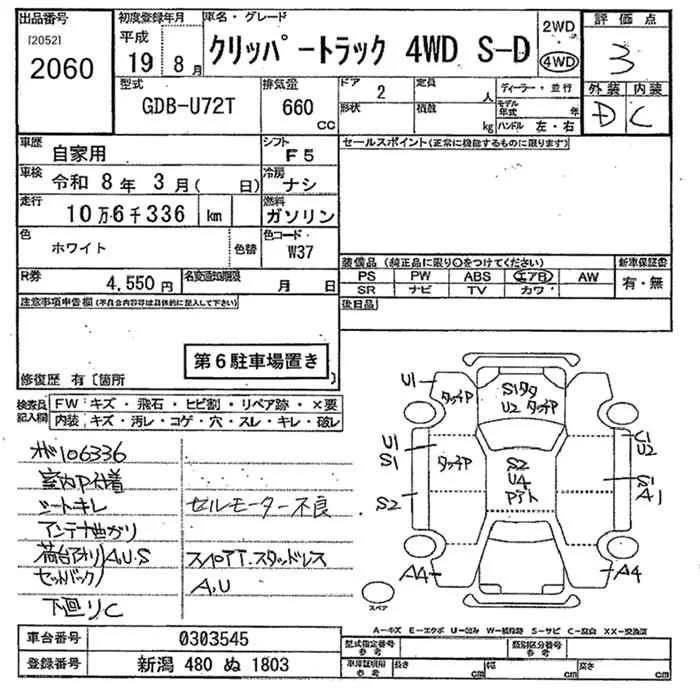 出品番号 初度登録年月 車名・グレード 評価点
[2052] 平成 2WD
2060 19 8月 クリッパートラック 4WD S-D 4WD 3
型式 排気量 ドア 定員 ディーラー・並行 外装 内装
GDB-U72T 660 CC 2 人 D C
形状 積載 kg モデル年式 年
ハンドル 左・右
車歴 自家用 シフト F5 セールスポイント(正常に機能するものに限ります)
車検 令和 8年 3月( 日) 冷房 ナシ
走行 10万6千336 km 燃料 ガソリン
色 ホワイト 色替 色コード W37
装備品(純正品に限り○をつけてください) 新車保証書
PS PW ABS エアB AW 有・無
SR ナビ TV カワ
R券 4,550円 名変通知期限 月 日
後日品
注意事項申告欄(不具合内容等は具体的に記入して下さい)
第6駐車場置き
修復歴 有〔箇所 〕
検査員記入欄 FW キズ・飛石・ヒビ割・リペア跡・×要
内装 キズ・汚レ・コゲ・穴・スレ・キレ・破レ
106336
シートキレ セルモーター不良
アンテナ曲がり
荷台アオリA,U,S スペアT.スタッドレス
セットバック A,U
下廻リC
U1 タッチP S1タタ
U2 タッチP
U1 C1
S1 タッチP S2 U2
U4 S1
S2 A1
A4 A4
スペア
A-キズ E-エクボ U-凹み W-補修跡 S-サビ C-腐食 XX-交換済
車台番号 0303545 型式指定番号 参考 類別区分番号 参考
登録番号 新潟 480 ぬ 1803 車庫証明用 参考 長さ cm 幅 cm 高さ cm